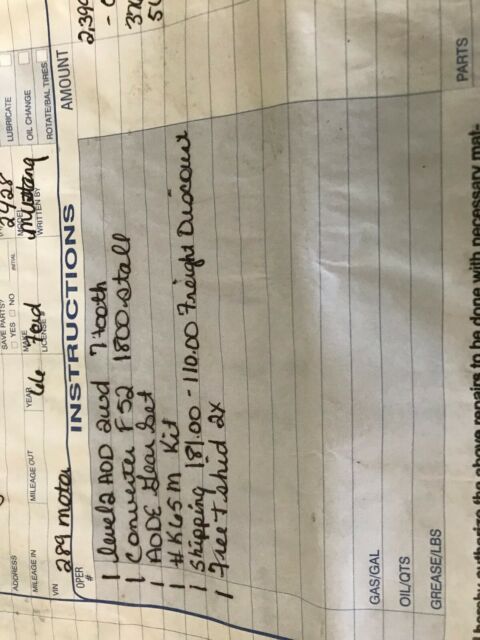 2428
ADDRESS
SAVE PARTS?
YES NO
INITIAL
LUBRICATE
MILEAGE IN
MILEAGE OUT
YEAR
66
MAKE
Ford
LICENSE
MODEL
Mustang
WRITTEN BY
OIL CHANGE
VIN
289 motor
ROTATE/BAL TIRES
OPER #
INSTRUCTIONS
AMOUNT
1 level 2 AOD 2wd 7 tooth
1 Converter F52 1800 stall
1 AODE Gear Set
1 #K65M Kit
1 Shipping 181.00 - 110.00 Freight Discount
1 Free T-shirt 2x
GAS/GAL
OIL/QTS
GREASE/LBS
PARTS
authorize the above repairs to be done with necessary mat-